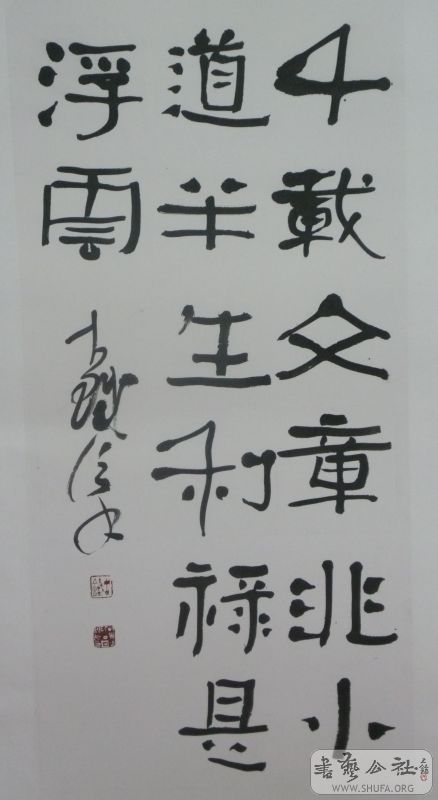 千載文章非小
道半生利祿是
浮雲
書藝公社
WWW.SHUFA.ORG